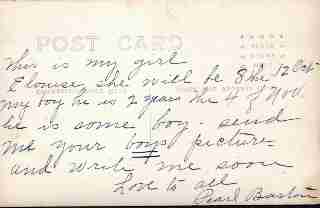 POST CARD
This is my girl
Elouise she will be 8 the 12 Oct
my boy he is 7 years the 4 of Nov.
he is some boy. send
me your boys picture
and write me soon
Love to all
Pearl